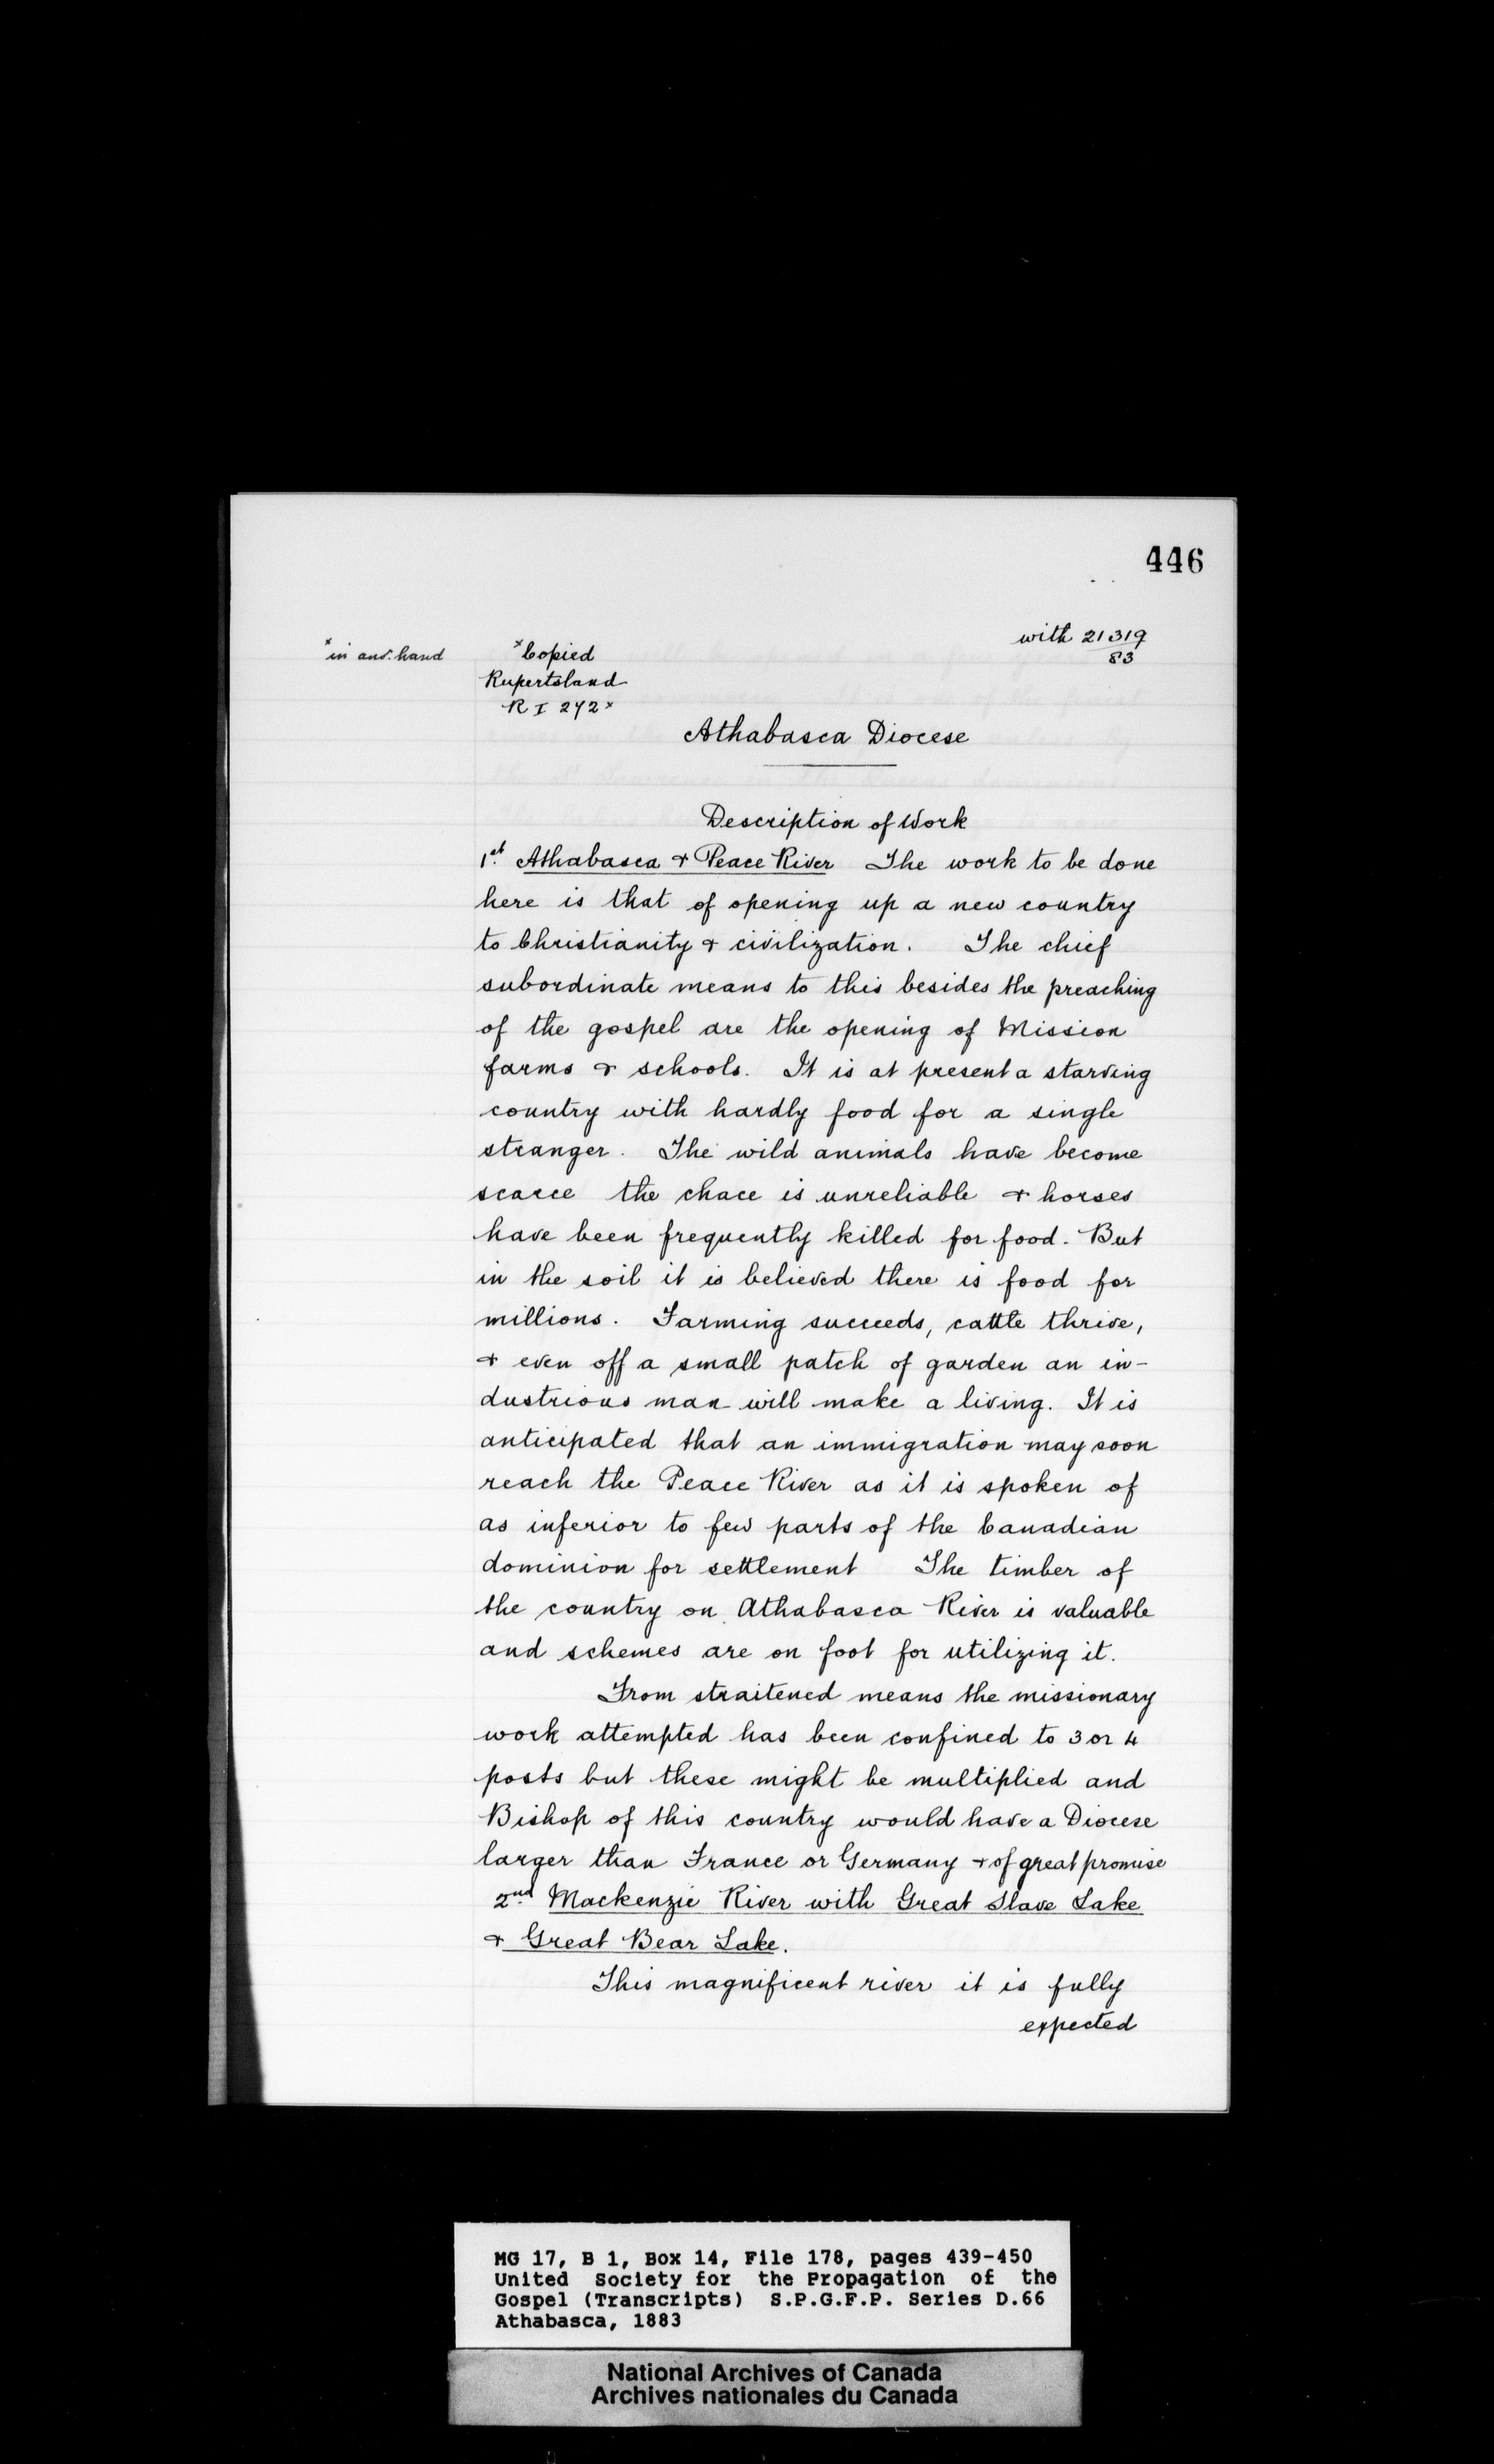 446
with 21319
83
x in anr. hand
x Copied
Rupertsland
R I 272 x
Athabasca Diocese
Description of Work
1st. Athabasca & Peace River The work to be done
here is that of opening up a new country
to Christianity & civilization. The chief
subordinate means to this besides the preaching
of the gospel are the opening of Mission
farms & schools. It is at present a starving
country with hardly food for a single
stranger. The wild animals have become
scarce the chace is unreliable & horses
have been frequently killed for food. But
in the soil it is believed there is food for
millions. Farming succeeds, cattle thrive,
& even off a small patch of garden an in-
dustrious man will make a living. It is
anticipated that an immigration may soon
reach the Peace River as it is spoken of
as inferior to few parts of the Canadian
dominion for settlement The timber of
the country on Athabasca River is valuable
and schemes are on foot for utilizing it.
From straitened means the missionary
work attempted has been confined to 3 or 4
posts but these might be multiplied and
Bishop of this country would have a Diocese
larger than France or Germany & of great promise
2nd Mackenzie River with Great Slave Lake
& Great Bear Lake.
This magnificent river it is fully
expected
MG 17, B 1, Box 14, File 178, pages 439-450
United Society for the Propagation of the
Gospel (Transcripts) S.P.G.F.P. Series D.66
Athabasca, 1883
National Archives of Canada
Archives nationales du Canada